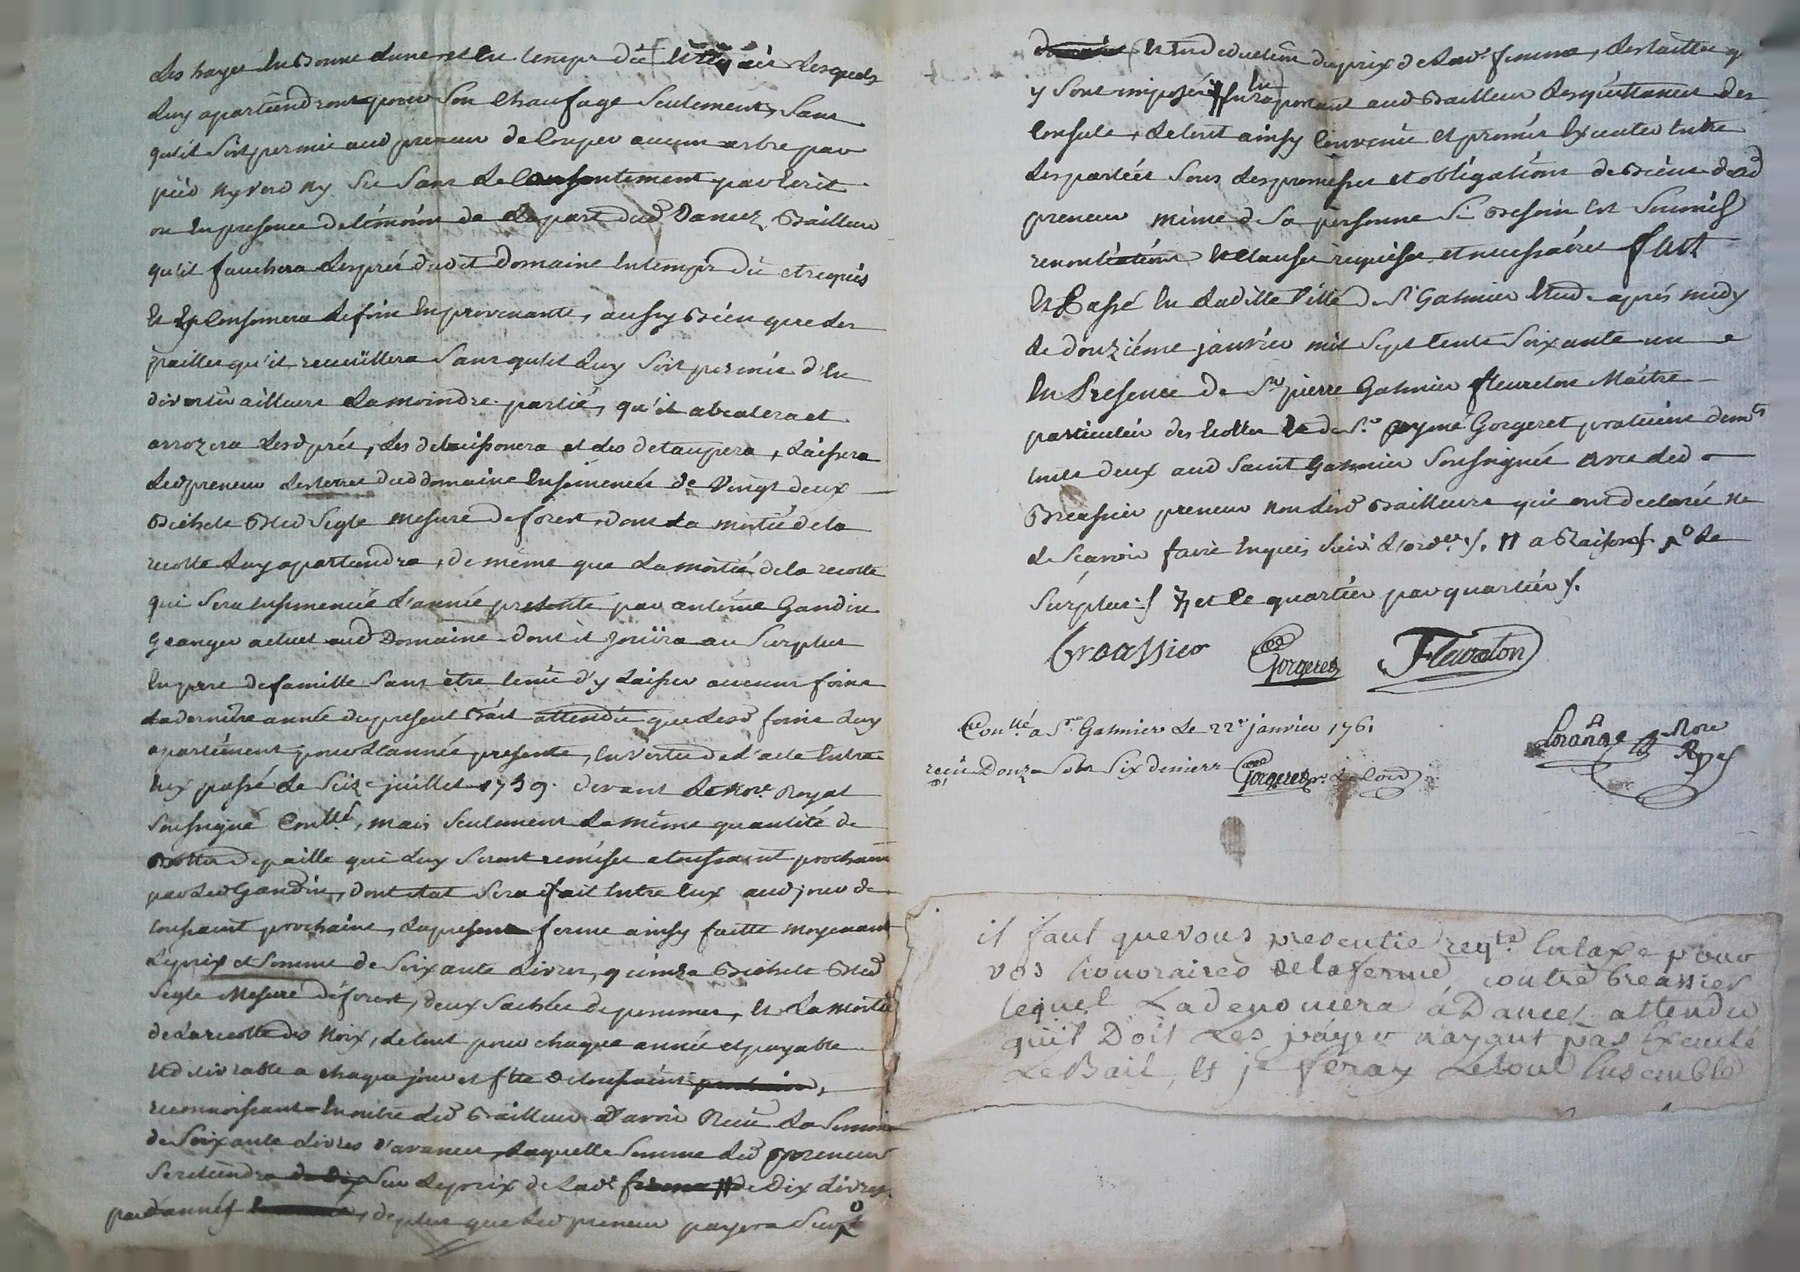 les hayes en Bonne Lune et en temps dû et requis lesquels
Luy apartiendront pour Son Chaufage Seulement, Sans
qu'il Soit permis aud preneur de Couper aucun arbre par
pied ny verd ny Sec Sans Le Consentement par Ecrit
ou En presence de témoins de La part dud Dancez Bailleur
qu'il fauchera Les prés dudit Domaine En temps dû et requis
Et Consomera Le foin En provenants, aussy Bien que Les
pailles qu'il receuillera Sans qu'il Luy Soit permis d'En
divertir ailleurs La moindre partie, qu'il abealera et
arrozera Lesd prés, Les debuissonera et Les detaupera, Laissera
Led preneur Les terres dud domaine Ensemencés de Vingt deux
Bichets Bled Segle mesure de forest, dont La moitié de la
recolte Luy apartiendra, de même que La moitié de la recolte
qui Sera Ensemencée L'année presente par antoine Gandin
Granger actuel aud Domaine dont il Joüira au Surplus
En pere de famille Sans être tenu d'y Laisser aucuns foins
La derniere année du present Bail attendu que Lesd foins Luy
apartienent pour L'année presente, En Vertu de L'acte Entre
Eux passé Le Seize juillet 1759. devant Le Nore Royal
Soussigné Contllé, mais Seulement La même quantité de
Bottes de paille qui Luy Seront remises a toussaint prochain
par Led Gandin, dont etat Sera fait Entre Eux aud jour de
toussaint prochaine, La presente ferme ainsy faitte moyenant
Le prix et Somme de Soixante Livres, quinze Bichets Bled
Segle Mesure de forest, deux Sachées de pommes, Et La moitié
de La recolte des Noix, Le tout pour chaque année et payable
Et delivrable a chaque jour et fête de toussaint,
reconnoissant En outre Led Bailleur d'avoir Reçu La Somme
de Soixante Livres d'avance, Laquelle Somme Led preneur
Se retiendra Sur Le prix de Lade ferme # de Dix Livres
par années, de plus que Led preneur payera Sur
Et En deduction du prix de Lad. ferme, Les tailles qui
y Sont imposés # En raportant aud Bailleur Les quittances des
Consuls, Le tout ainsy Convenu Et promis Executer Entre
Les parties Sous Les promesses et obligations de Biens dud
preneur même de Sa personne Si Besoin Est Soumis
renonciations Et Clauses requises et necessaires fait
Et Passé En Laditte Ville de St Galmier Etude après midy
Le douzième janvier mil Sept Cents Soixante un
En Presence de Sr pierre Galmier fleureton Maitre
particulier des Et de Sr Gorgeret praticien demts
tous deux aud Saint Galmier Soussignés avec Led
Breassier preneur non Lesd Bailleurs qui ont declarés ne
Le Scavoir faire Enquis Suivt L'ordce /. # a Raison /. Le
Surplus /. et Ce quartier par quartier /.
Breassier Gorgeret Fleureton
Contllé a St Galmiere Le 22e janvier 1761
reçu Douze Sols Six deniers Gorgeret
Nore
Roy
il faut que vous presentié reqte En taxe pour
vos honoraires de la ferme contre Breassier
lequel La denoncera à Dancez attendu
qu'il Doit Les payer n'ayant pas Exeuté
Le Bail, Et je feray Le tout Ensemble